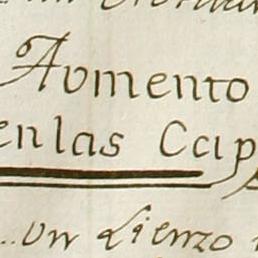 Aomento
enlas Ccip
un Lienzo